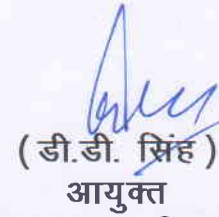 ( डी.डी. सिंह )
आयुक्त